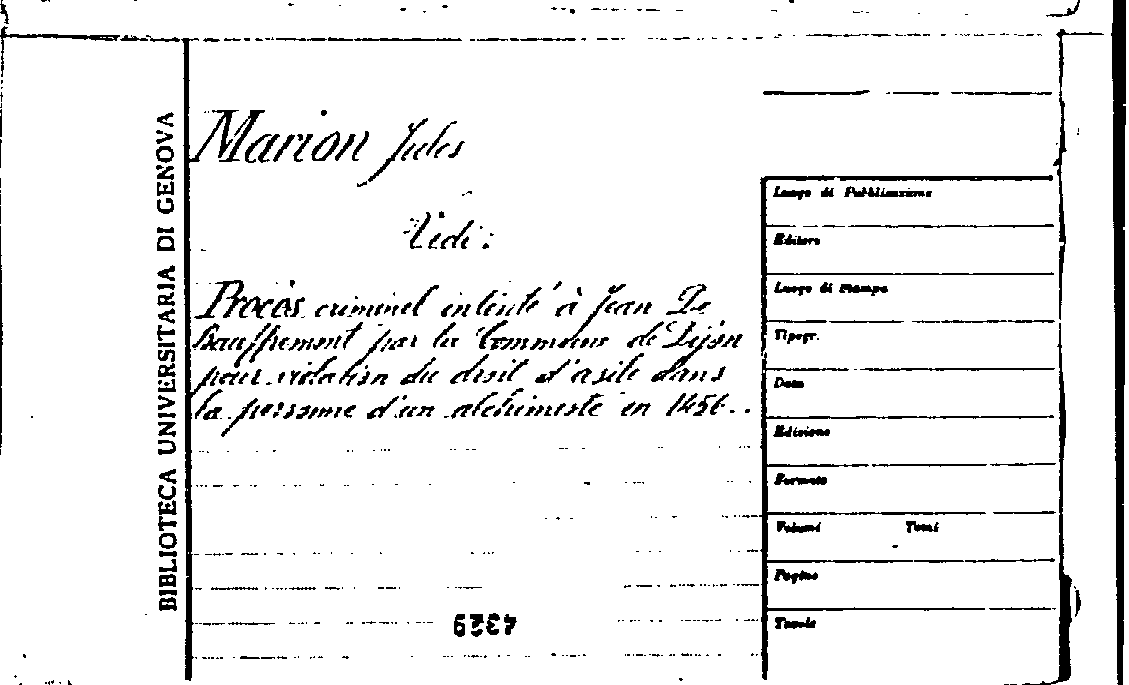 BIBLIOTECA UNIVERSITARIA DI GENOVA
Marion Jules
Vedi:
Procès criminel intenté à Jean De
Bauffremont par la Commune de Dijon
pour violation du droit d'asile dans
la personne d'un alchimiste en 1456..
4329
Luogo di Pubblicazione
Editore
Luogo di stampa
Tipogr.
Data
Edizione
Formato
Volumi Tomi
Pagine
Tavole